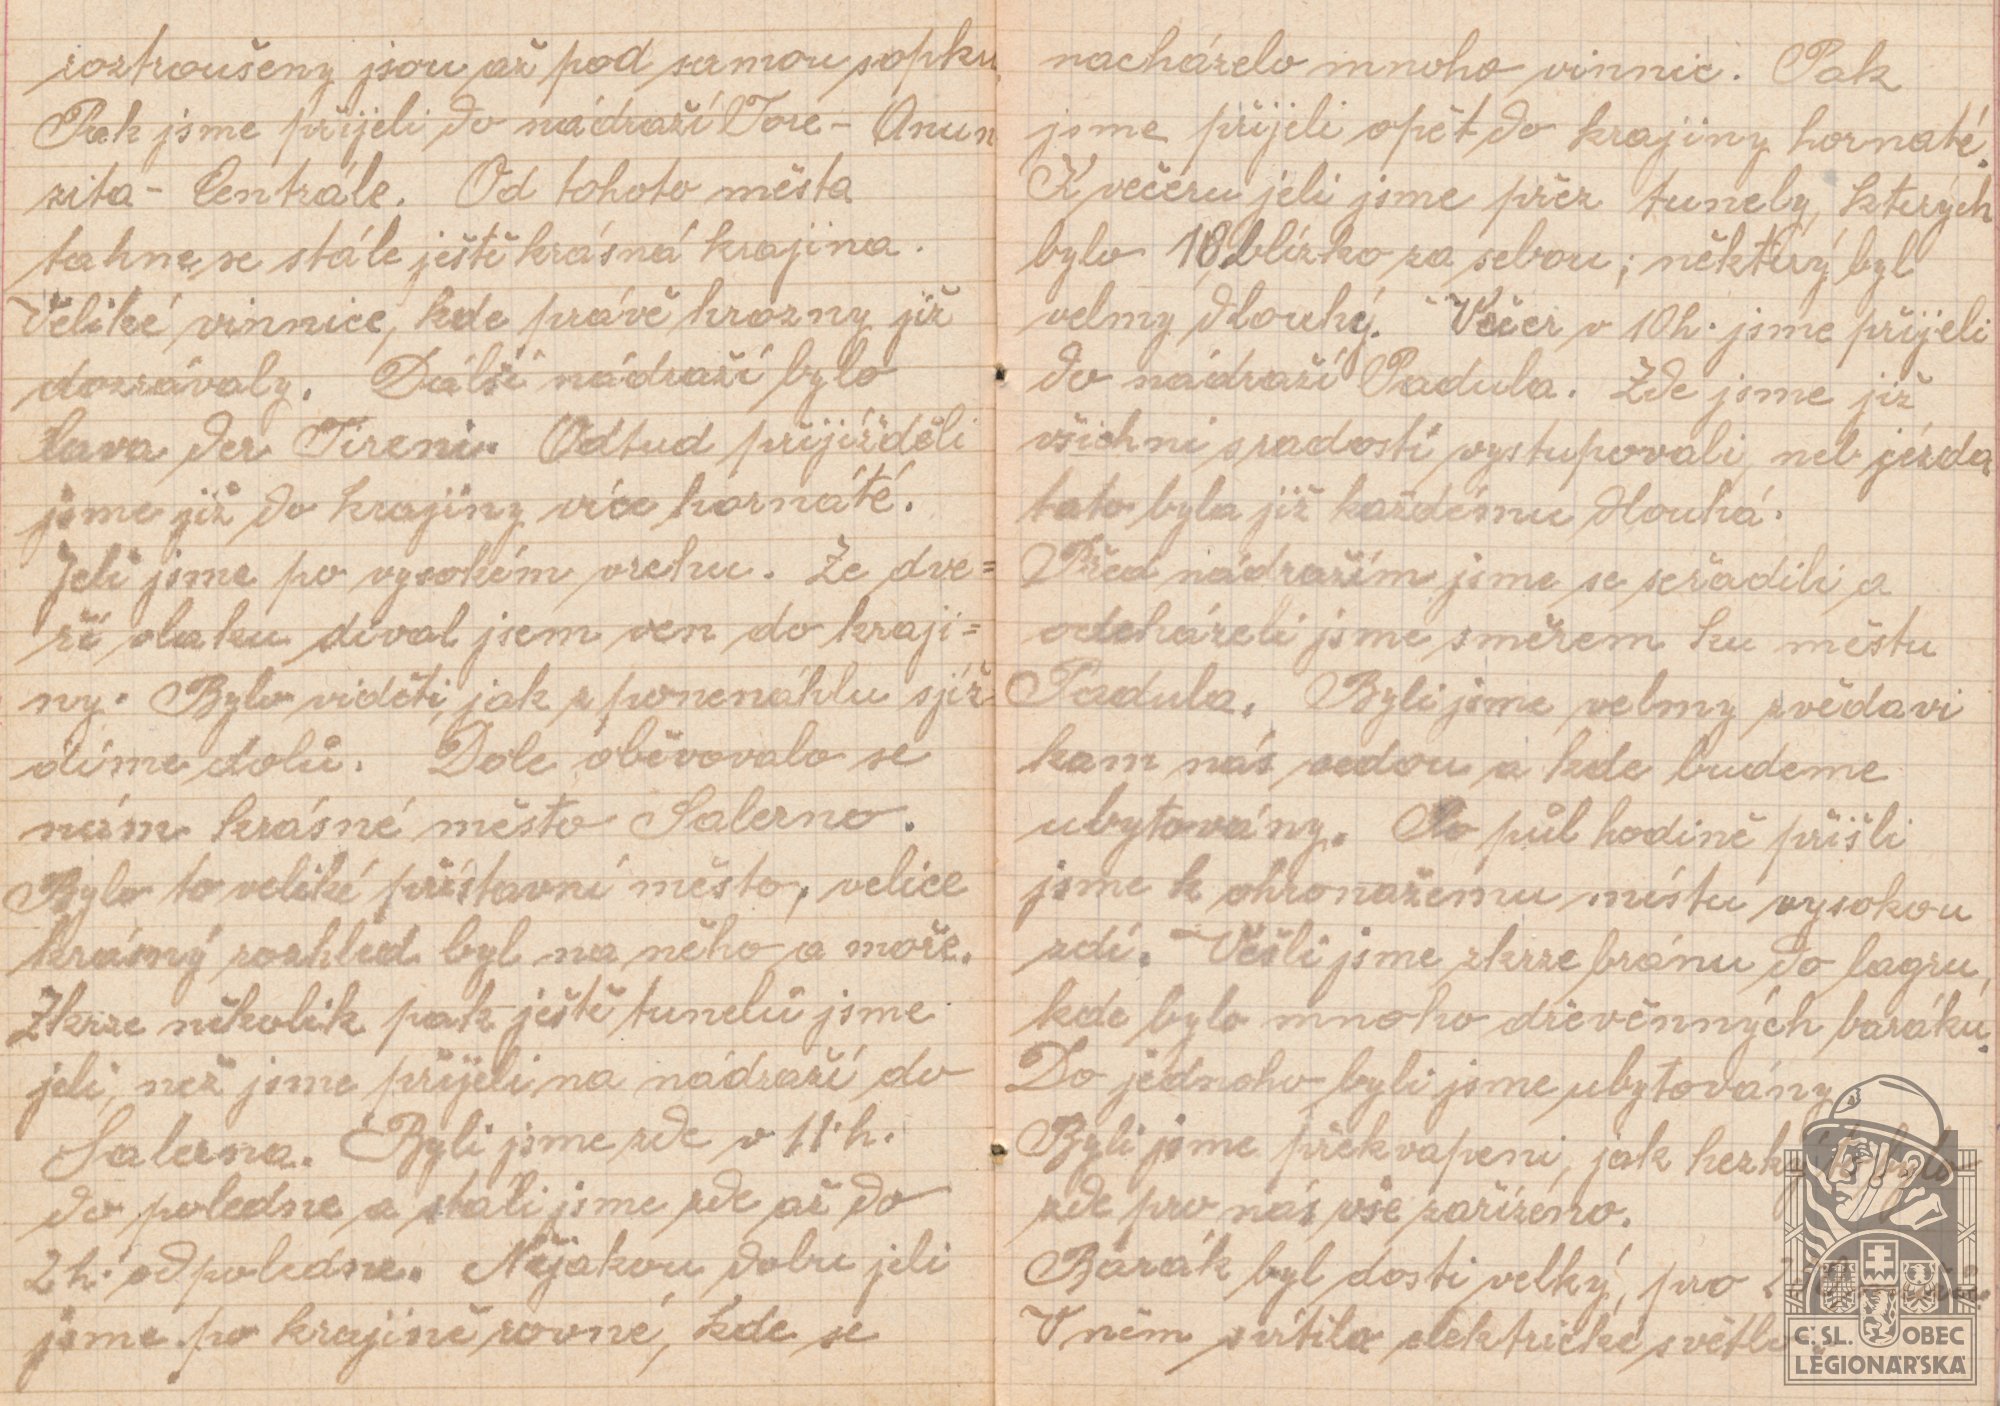 roztroušeny jsou až pod samou sopku
Pak jsme přijeli do nádraží Tore - Anun
zita - Centrále. Od tohoto města
tahne se stále ještě krásná krajina.
Veliké vinnice, kde právě hrozny již
dozrávaly. Další nádraží bylo
Cava der Tireni. Odtud přijížděli
jsme již do krajiny více hornáté.
Jeli jsme po vysokém vrchu. Ze dve=
ří vlaku díval jsem ven do kraji=
ny. Bylo viděti, jak z ponenáhlu sjíž
díme dolů. Dole oběvovalo se
nám krásné město Salerno.
Bylo to veliké přístavní město, velice
krásný rozhled byl na něho a moře.
Zkrze několik pak ještě tunelů jsme
jeli, než jsme přijeli na nádraží do
Salerna. Byli jsme zde v 11 h.
do poledne a stáli jsme zde až do
2 h. odpoledne. Nějakou dobu jeli
jsme po krajině rovné, kde se
nacházelo mnoho vinnic. Pak
jsme přijeli opět do krajiny hornaté.
K večeru jeli jsme přez tunely, kterých
bylo 18 blízko za sebou; některý byl
velmy dlouhý. Večer v 10h. jsme přijeli
do nádraží Padula. Zde jsme již
všichni s radostí vystupovali, neb jézda
tato byla již každému dlouhá.
Před nádražím jsme se seřadili a
odcházeli jsme směrem ku městu
Padula. Byli jsme velmy zvědavi
kam nás vedou a kde budeme
ubytovány. Po půl hodině přišli
jsme k ohronaženu místu vysokou
zdí. Vešli jsme zkrze bránu do lagru,
kde bylo mnoho dřevěnných baráku.
Do jednoho byli jsme ubytovány
Byli jsme překvapeni, jak hezky bylo
zde pro nás vše zařízeno.
Barák byl dosti velký, pro
V něm svítila elektrické světlo
Č. SL. OBEC
LEGIONÁŘSKÁ